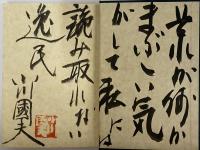 葉が何か
まぶしい気
がして私には
読み取れない
逸民
小川國夫